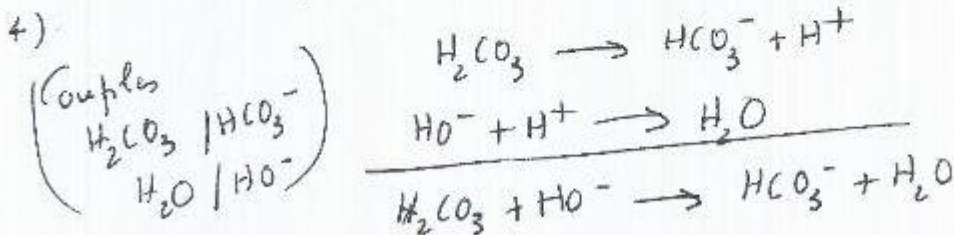 4)
(Couples
H₂CO₃ / HCO₃⁻
H₂O / HO⁻)
H₂CO₃ → HCO₃⁻ + H⁺
HO⁻ + H⁺ → H₂O
H₂CO₃ + HO⁻ → HCO₃⁻ + H₂O